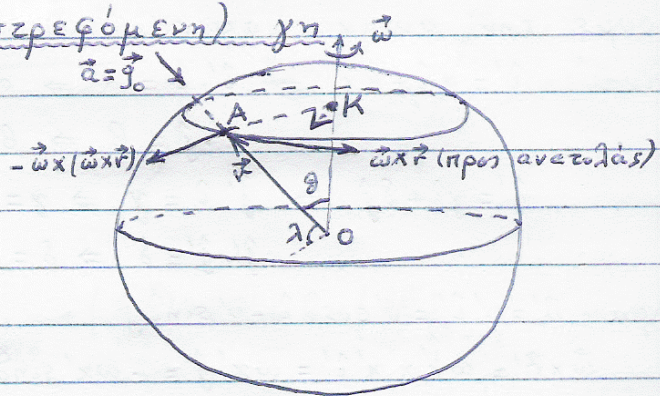 τρεφόμενη) γη
ω⃗
a⃗=g⃗₀
A
K
-ω⃗x(ω⃗xr⃗)
r⃗
ω⃗xr⃗ (προς ανατολάς)
θ
λ
O